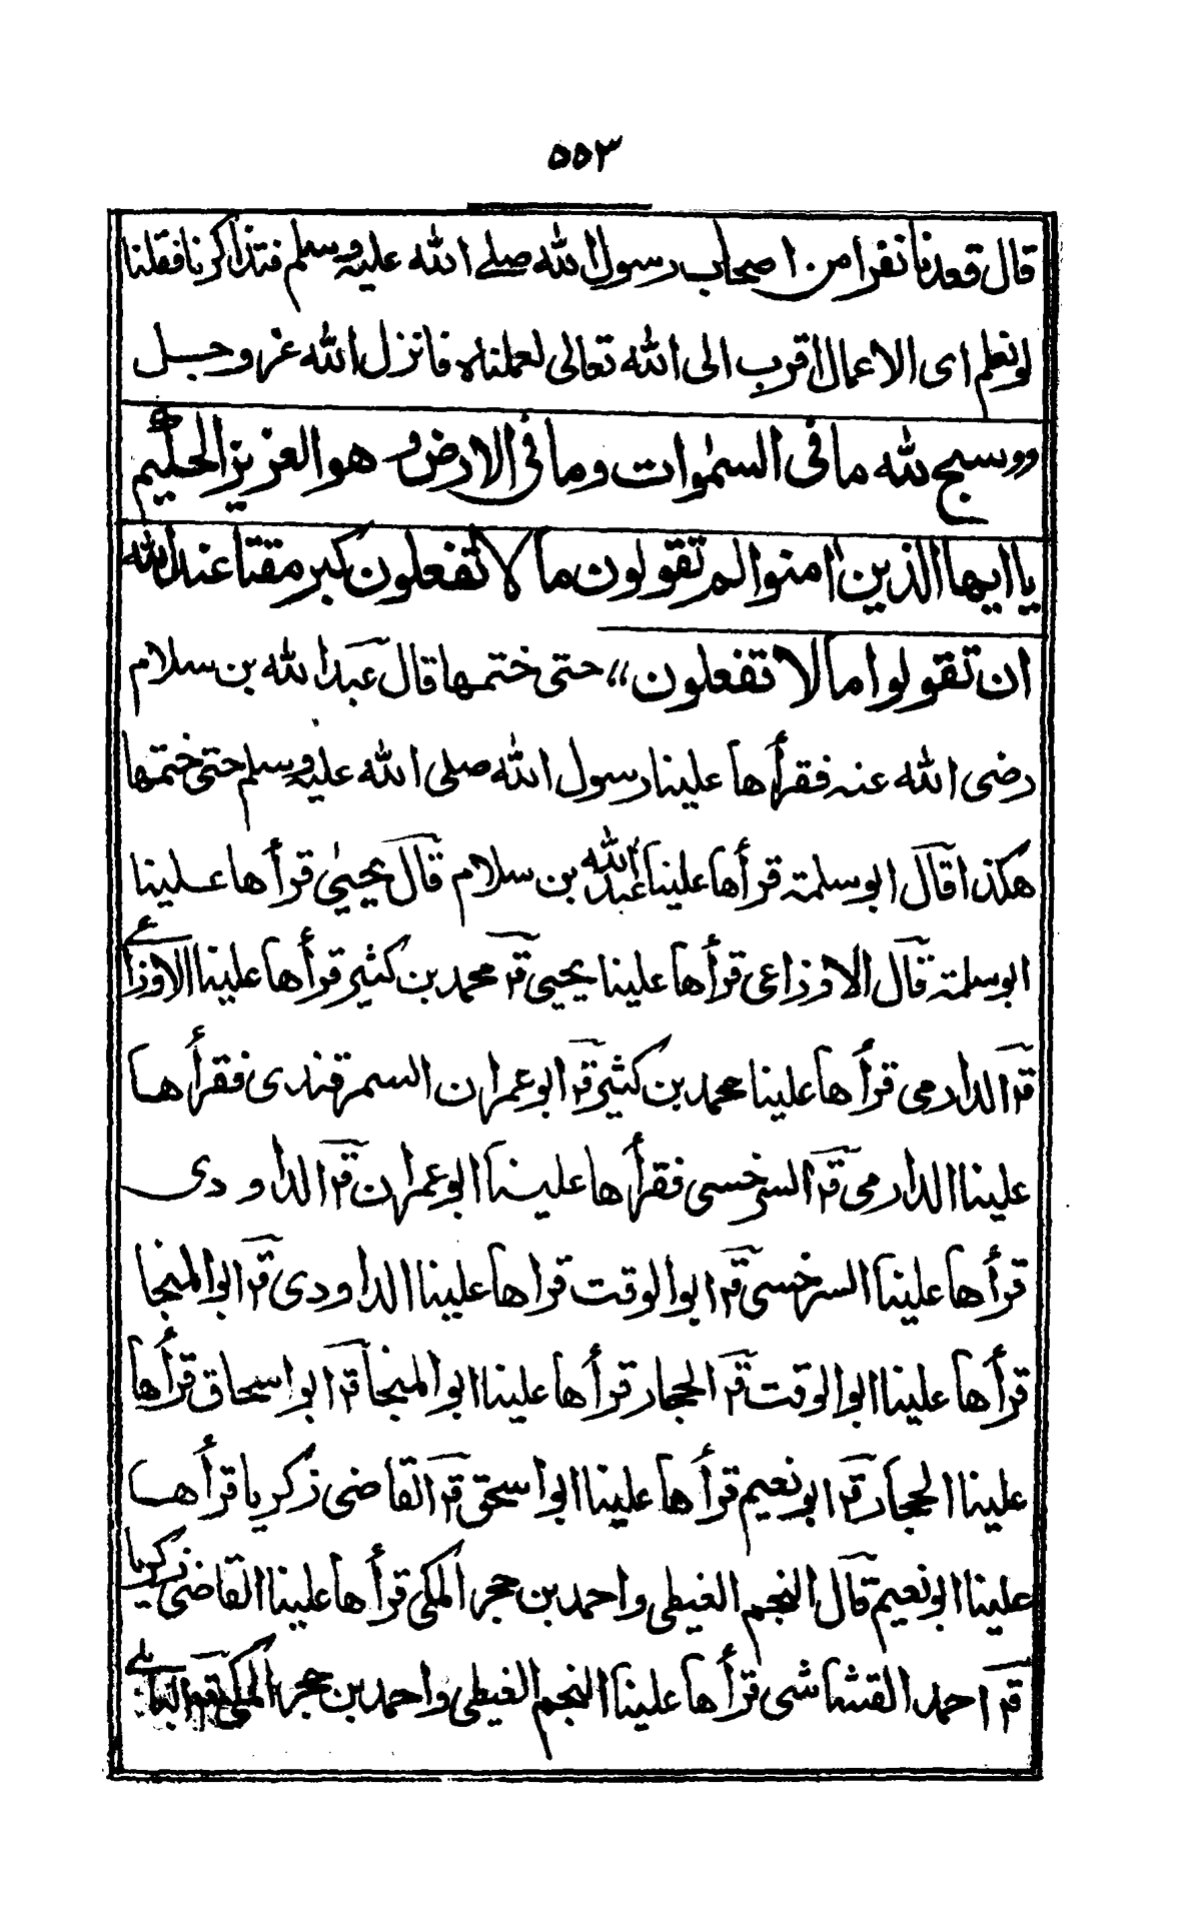 ٥٥٣
قال قعدنا نفرا من اصحاب رسول الله صلے الله علیه وسلم فتذاكرنا فقلنا
لو نعلم اى الاعمال اقرب الى الله تعالى لعملناه فانزل الله عز وجل
وو سبح لله ما فى السمٰوات وما فى الارض وهو العزيز الحكيم
يا ايها الذين اٰمنوا لم تقولون ما لا تفعلون كبر مقتا عند الله
ان تقولوا ما لا تفعلون ،، حتى ختمها قال عبد الله بن سلام
رضى الله عنه فقرأها علينا رسول الله صلى الله عليه وسلم حتى ختمها
هكذا قال ابو سلمة قرأها علينا عبد الله بن سلام قال يحيىٰ قرأها علينا
ابو سلمة قال الاوزاعى قرأها علينا يحيى قٓ محمد بن كثير قرأها علينا الاوزاعے
قٓ الدارمى قرأها علينا محمد بن كثير قٓ ابو عمران السمرقندى فقرأها
علينا الدارمى قٓ السرخسى فقرأها علينا ابو عمران قٓ الداودى
قرأها علينا السرخسى قٓ ابو الوقت قراها علينا الداودى قٓ ابو المنجا
قرأها علينا ابو الوقت قٓ الحجار قرأها علينا ابو المنجا قٓ ابو اسحاق قرأها
علينا الحجار قٓ ابو نعيم قرأها علينا ابو اسحق قٓ القاضى زكريا قرأها
علينا ابو نعيم قال النجم الغيطى واحمد بن حجر المكى قرأها علينا القاضى زكريا
قٓ احمد القشاشى قرأها علينا النجم الغيطى واحمد بن حجر المكى